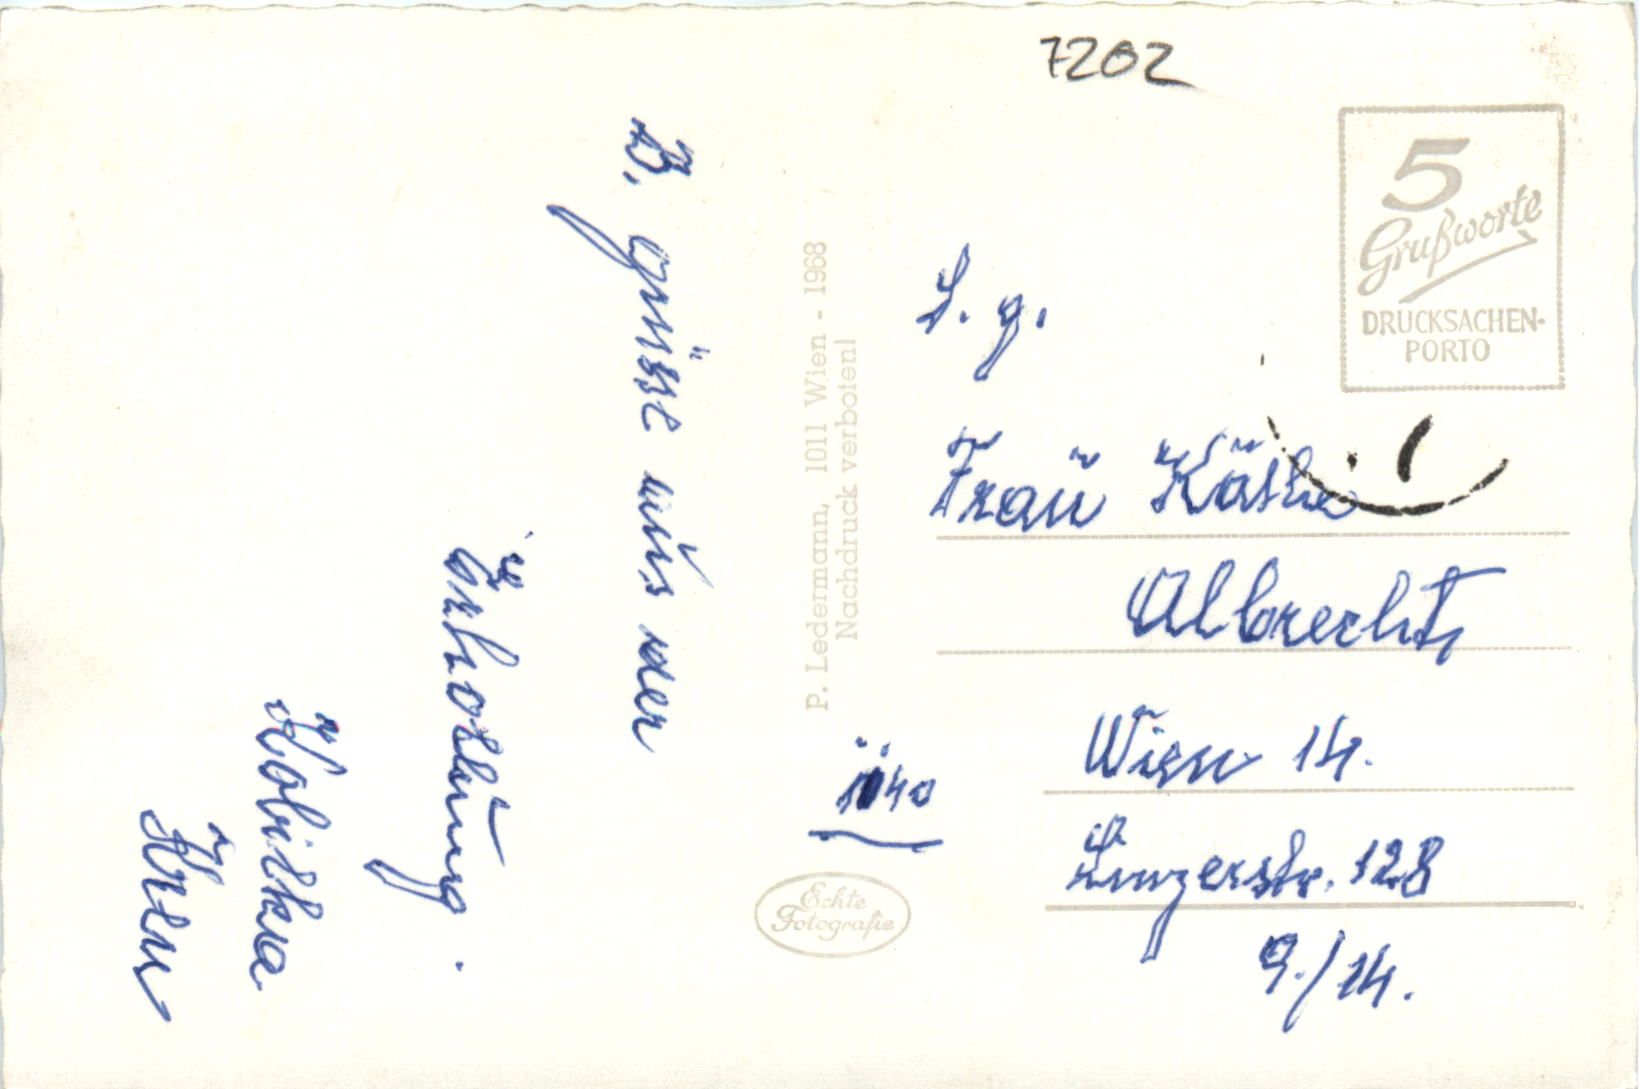 7202
5
Grußworte
DRUCKSACHEN-
PORTO
B. grüsse aus der
Erholung.
Kobitka
P. Ledermann, 1011 Wien - 1968
Nachdruck verboten!
Echte
Fotografie
S. g.
Frau Käthe
Albrecht,
Wien 14.
1140
Linzerstr. 128
9./14.